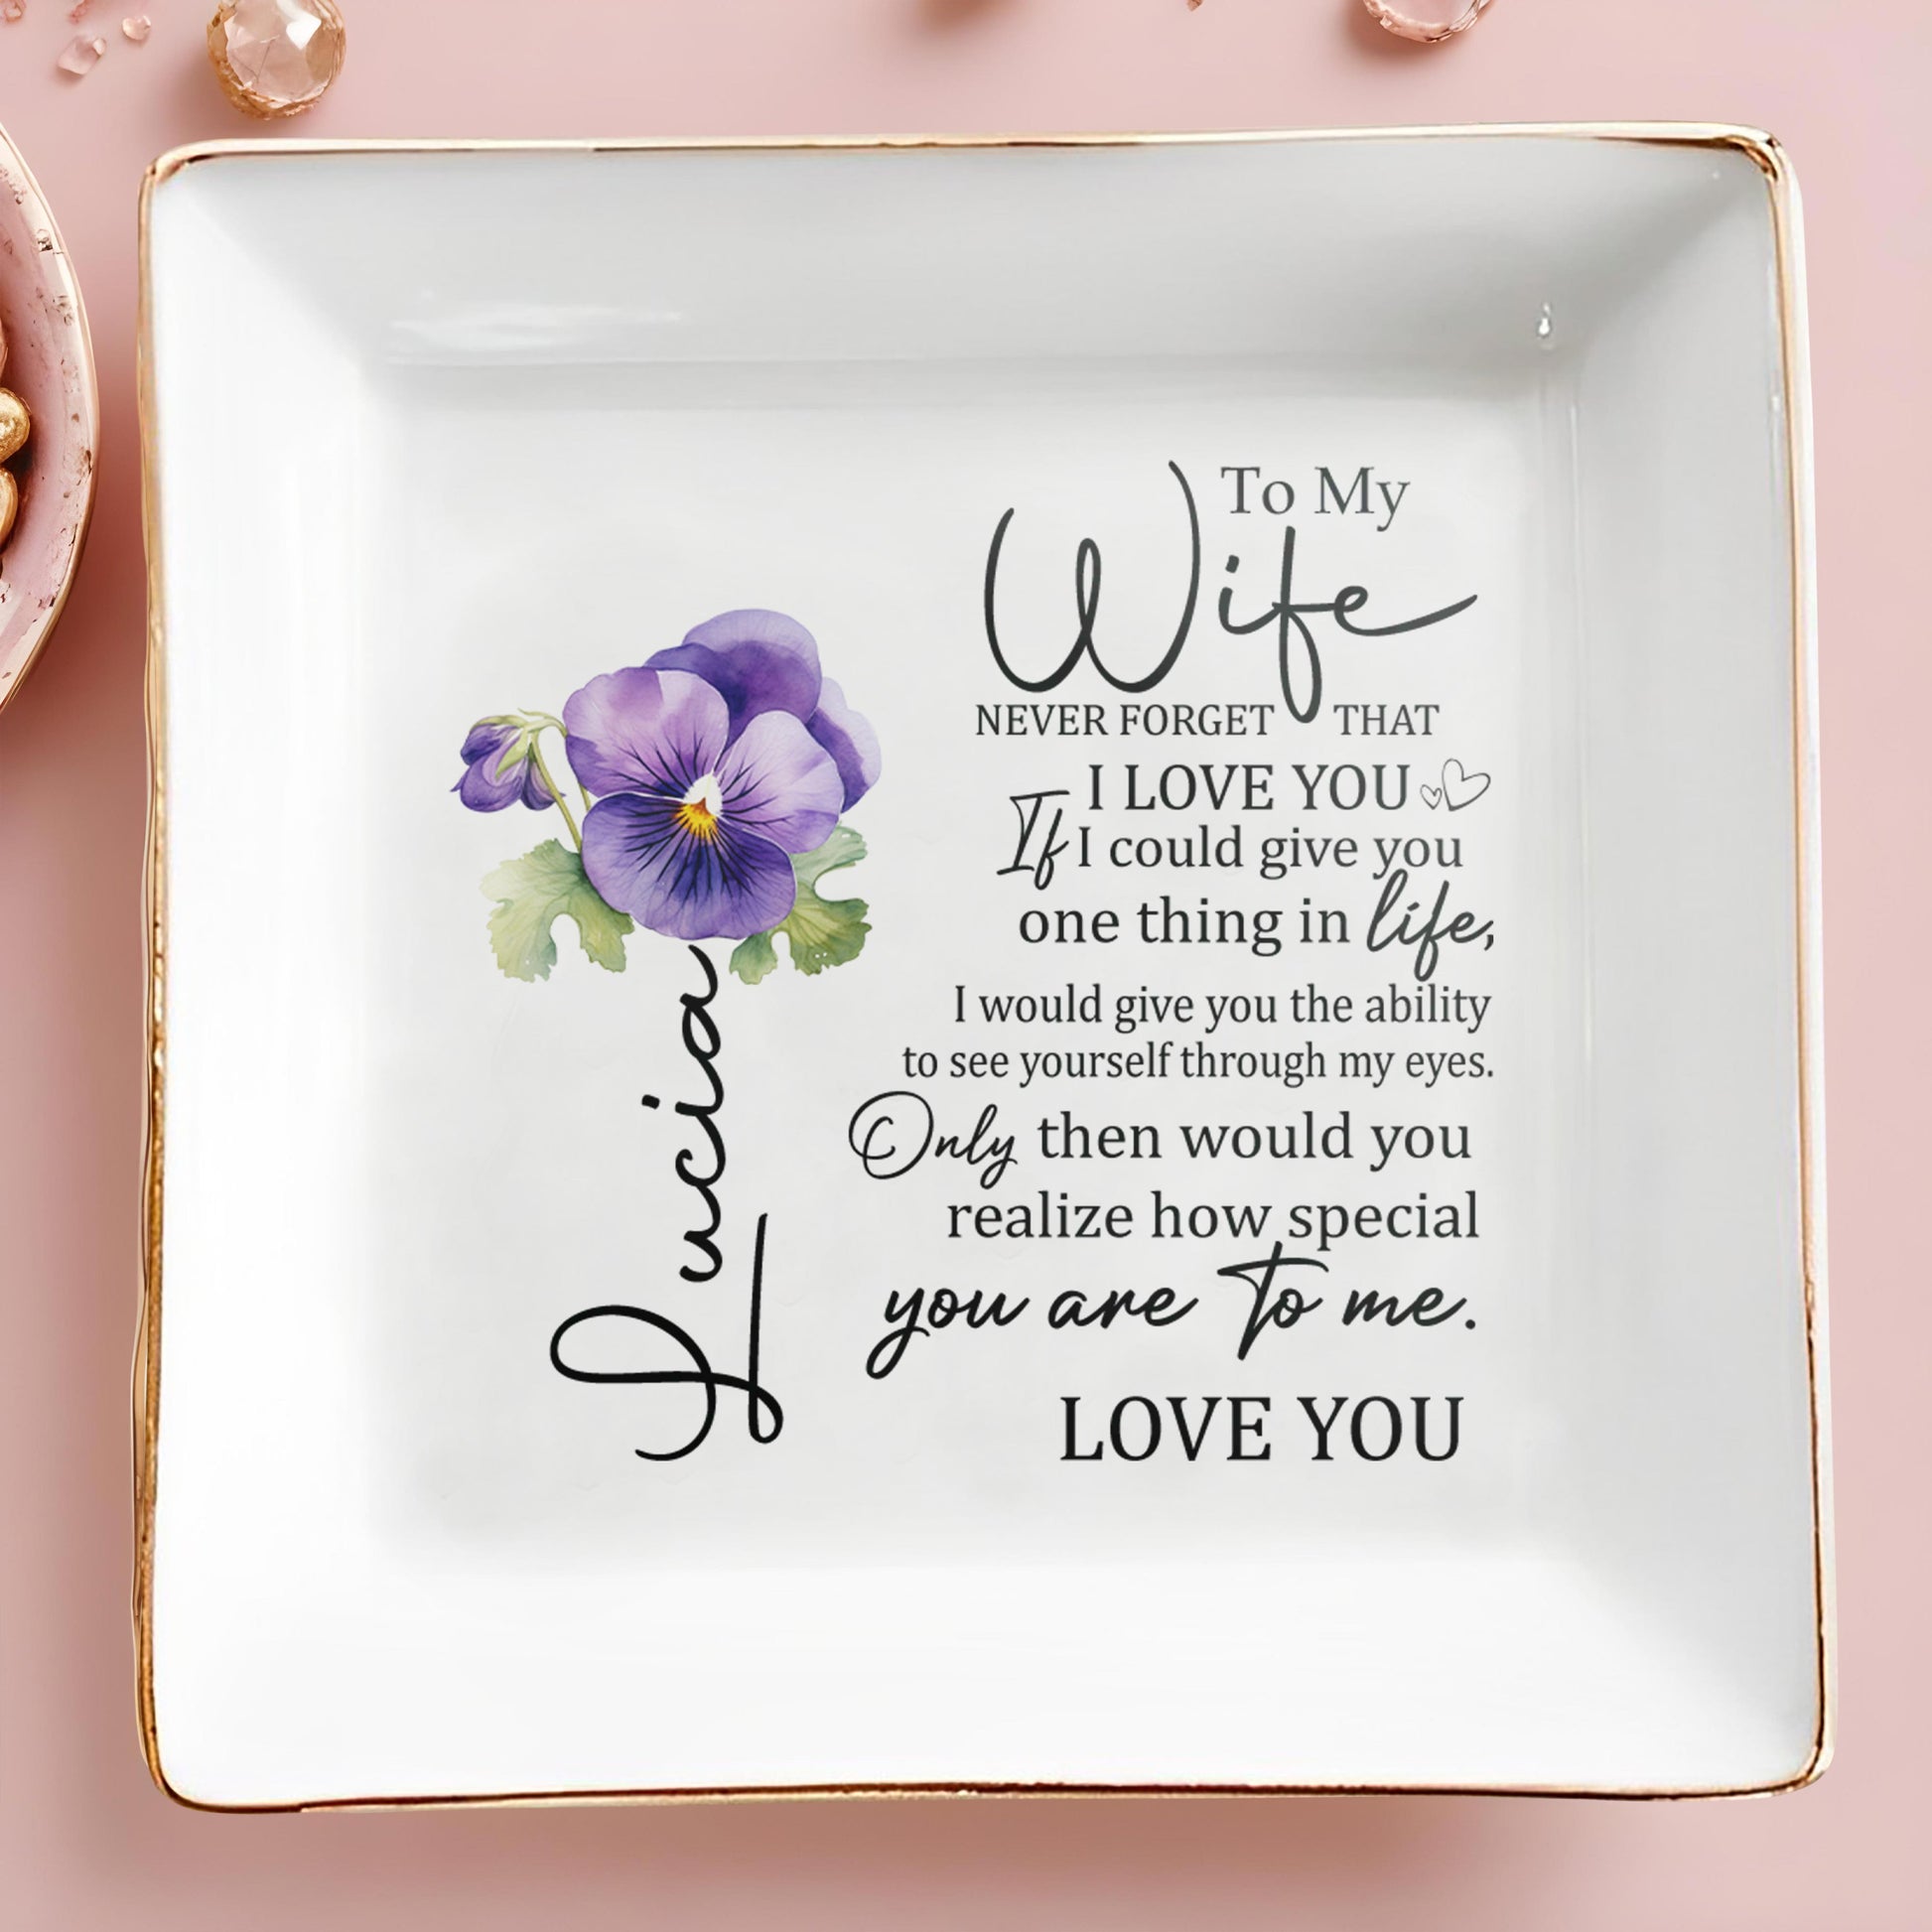 Lucia
To My
Wife
NEVER FORGET THAT
I LOVE YOU
If I could give you
one thing in life,
I would give you the ability
to see yourself through my eyes.
Only then would you
realize how special
you are To me.
LOVE YOU